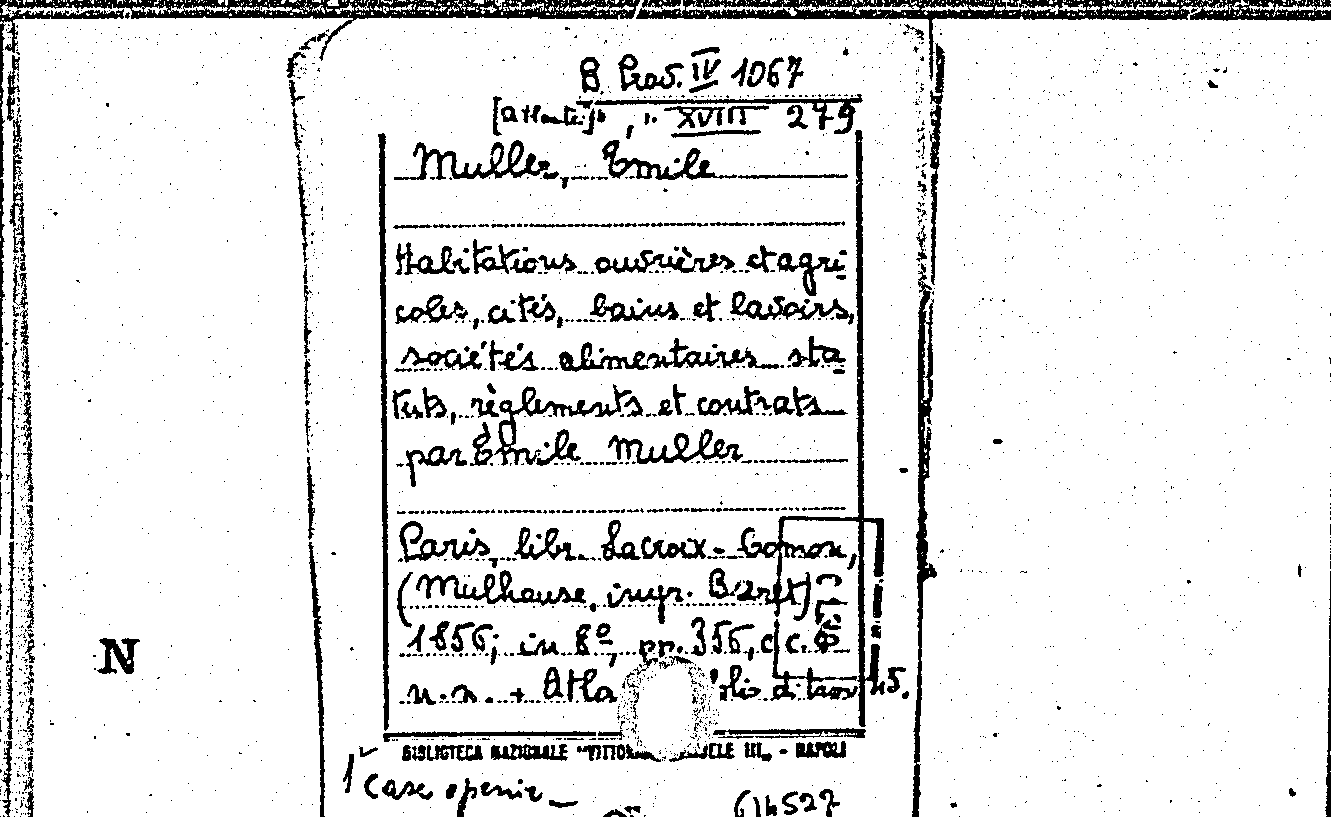 B. Prov. IV 1067
[atlante] , " XVIII 279
Muller, Emile
Habitations ouvrières et agri-
coles, cités, bains et lavoirs,
sociétés alimentaires sta-
tuts, règlements et contrats
par Emile Muller
Paris, libr. Lacroix-Comon,
(Mulhouse, impr. Baret)
1856; in 8º, pp. 356, c.
n.n. + Atla di tavv 45.
BIBLIOTECA NAZIONALE "VITTOR ELE III„ - NAPOLI
N
1 Case operaie
614527